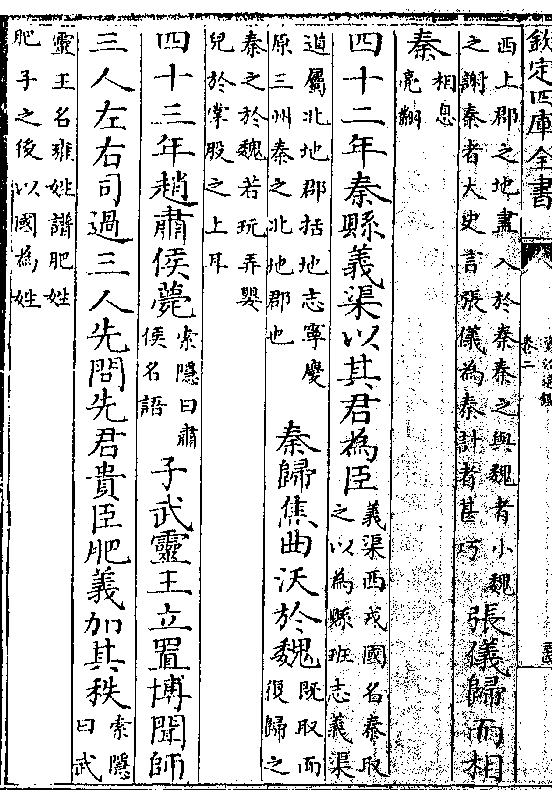 欽定四庫全書
資治通鑑
卷二
西上郡之地盡入於秦秦之與魏者小魏
之謝秦者大史言張儀為秦計者甚巧
張儀歸而相
秦
相息
亮翻
四十二年秦縣義渠以其君為臣
義渠西戎國名秦取
之以為縣班志義渠
道屬北地郡括地志寧慶
原三州秦之北地郡也
秦歸焦曲沃於魏
既取而
復歸之
秦之於魏若玩弄嬰
兒於掌股之上耳
四十三年趙肅侯薨
索隱曰肅
侯名語
子武靈王立置博聞師
三人左右司過三人先問先君貴臣肥義加其秩
索隱
曰武
靈王名雍姓譜肥姓
肥子之後以國為姓